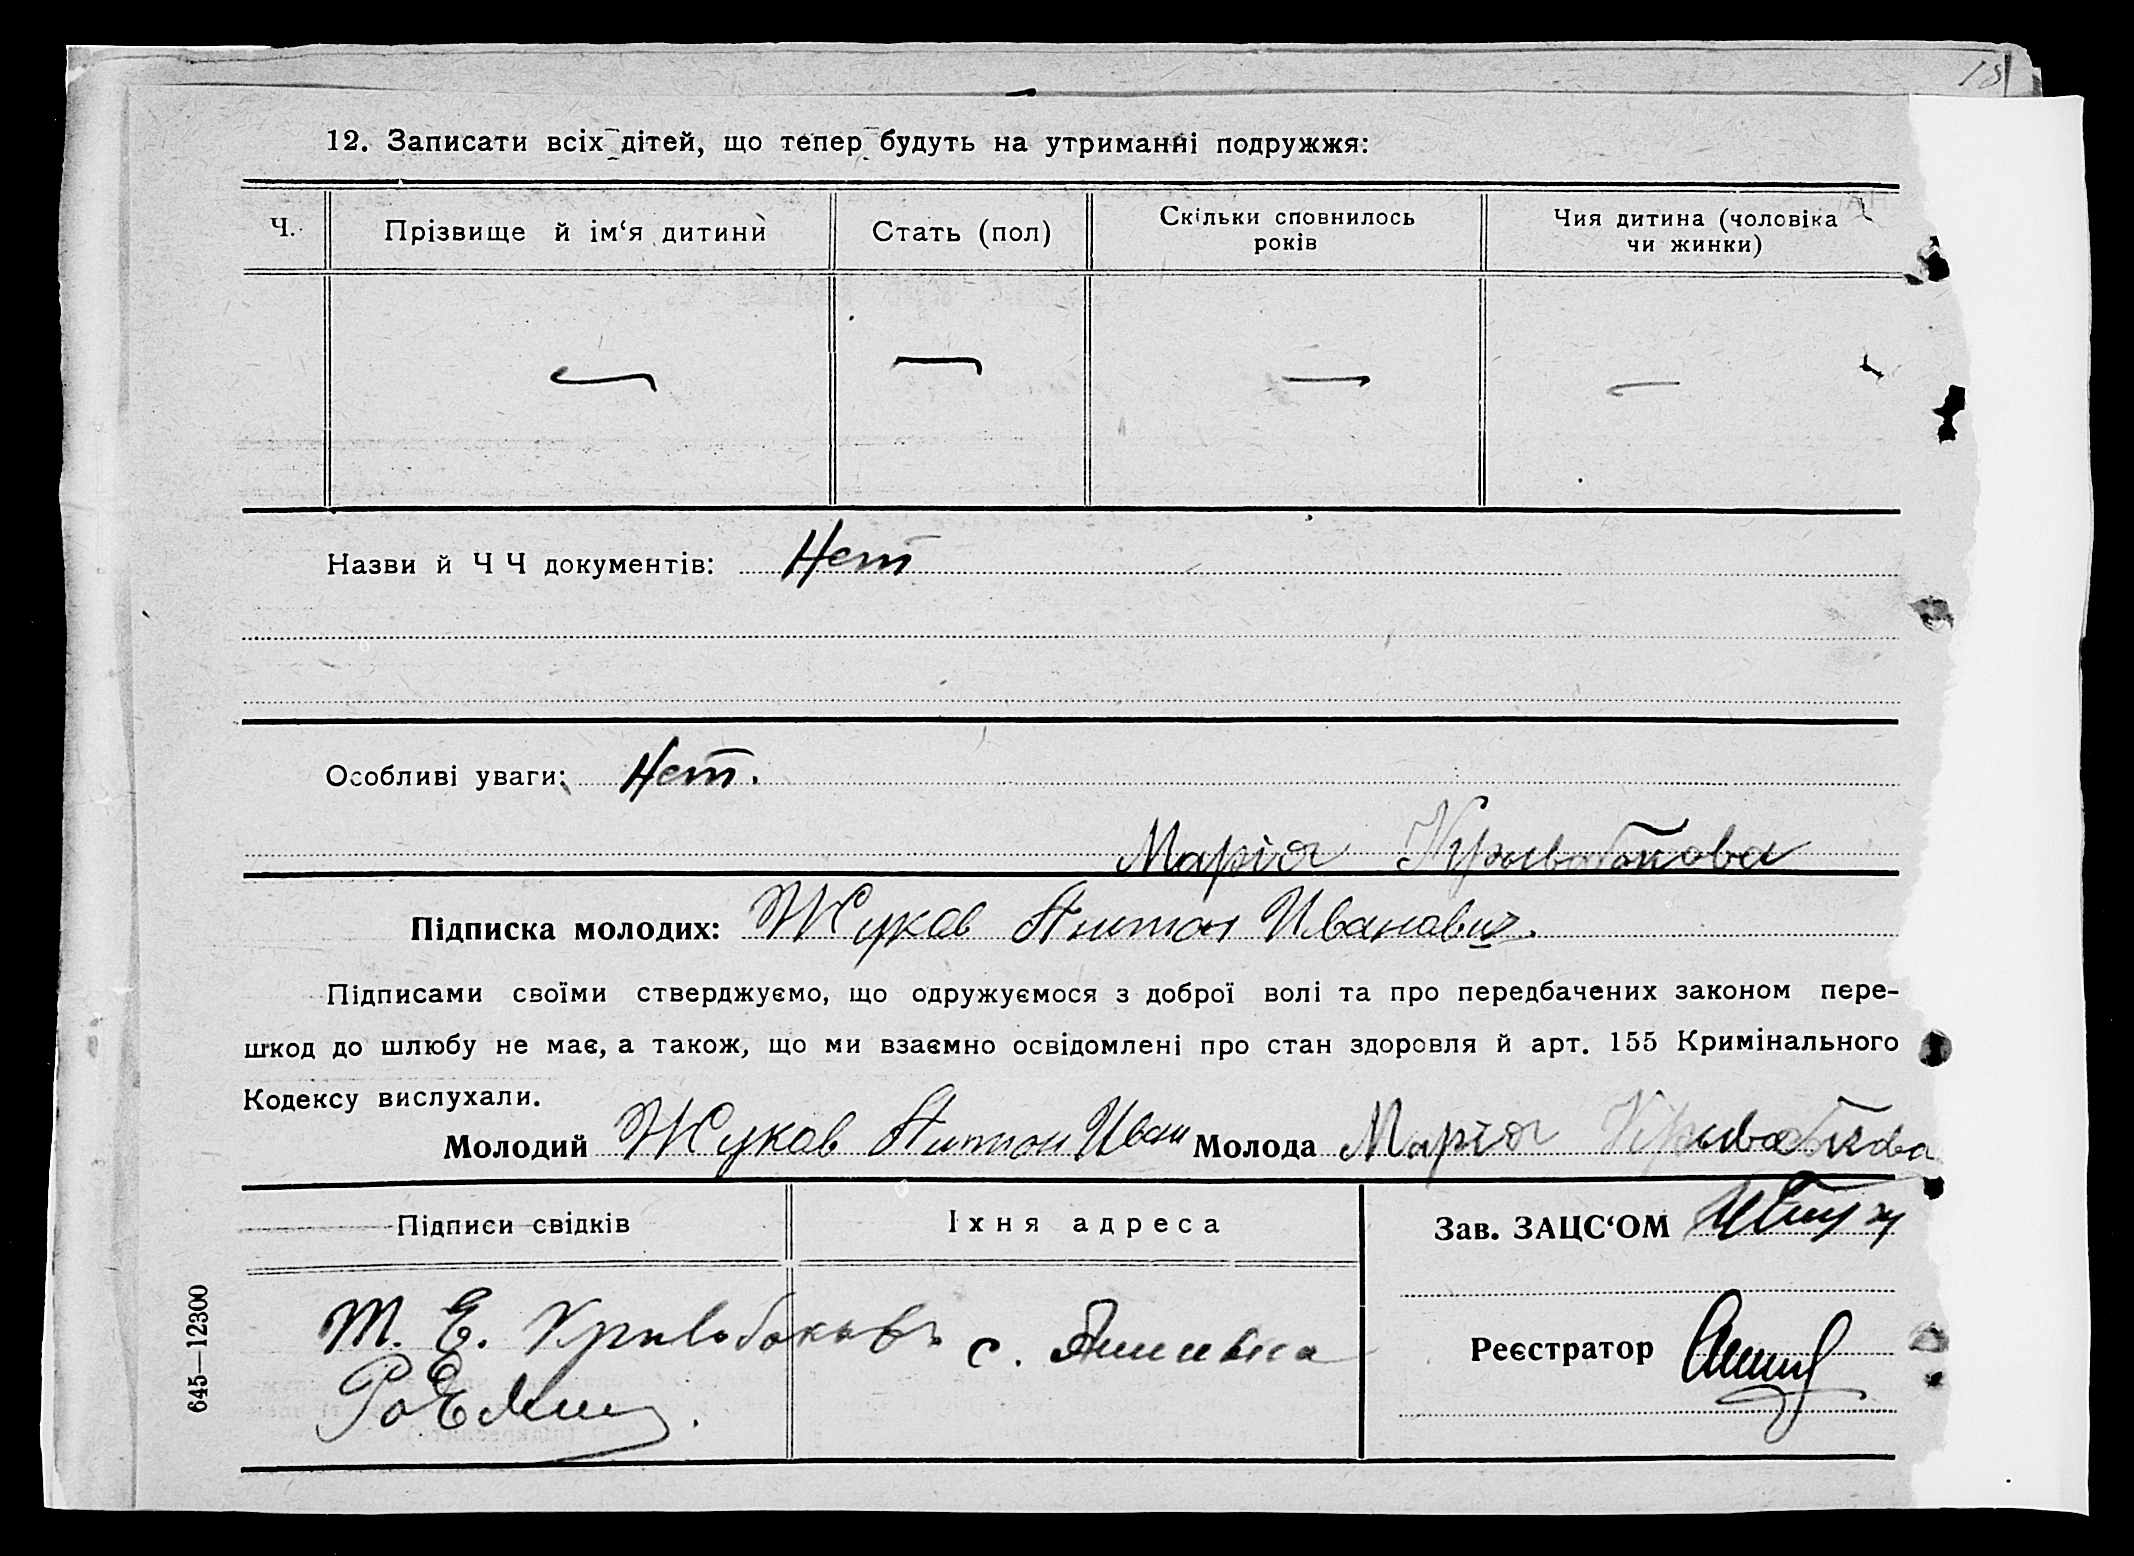 18
12. Записати всіх дітей, що тепер будуть на утриманні подружжя:
Ч. Прізвище й ім‘я дитини Стать (пол) Скільки сповнилось років Чия дитина (чоловіка чи жинки)
— — — —
Назви й Ч Ч документів: Нет
Особливі уваги: Нет.
Марія Крывабокова
Підписка молодих: Жуков Антон Иванович.
Підписами своїми стверджуємо, що одружуємося з доброї волі та про передбачених законом пере-
шкод до шлюбу не має, а також, що ми взаємно освідомлені про стан здоровля й арт. 155 Кримінального
Кодексу вислухали.
Молодий Жуков Антон Иван Молода Марія Крывабокова
Підписи свідків Їхня адреса Зав. ЗАЦС‘ОМ
Т. Е. Кривобоковъ с.
Реєстратор
645—12300